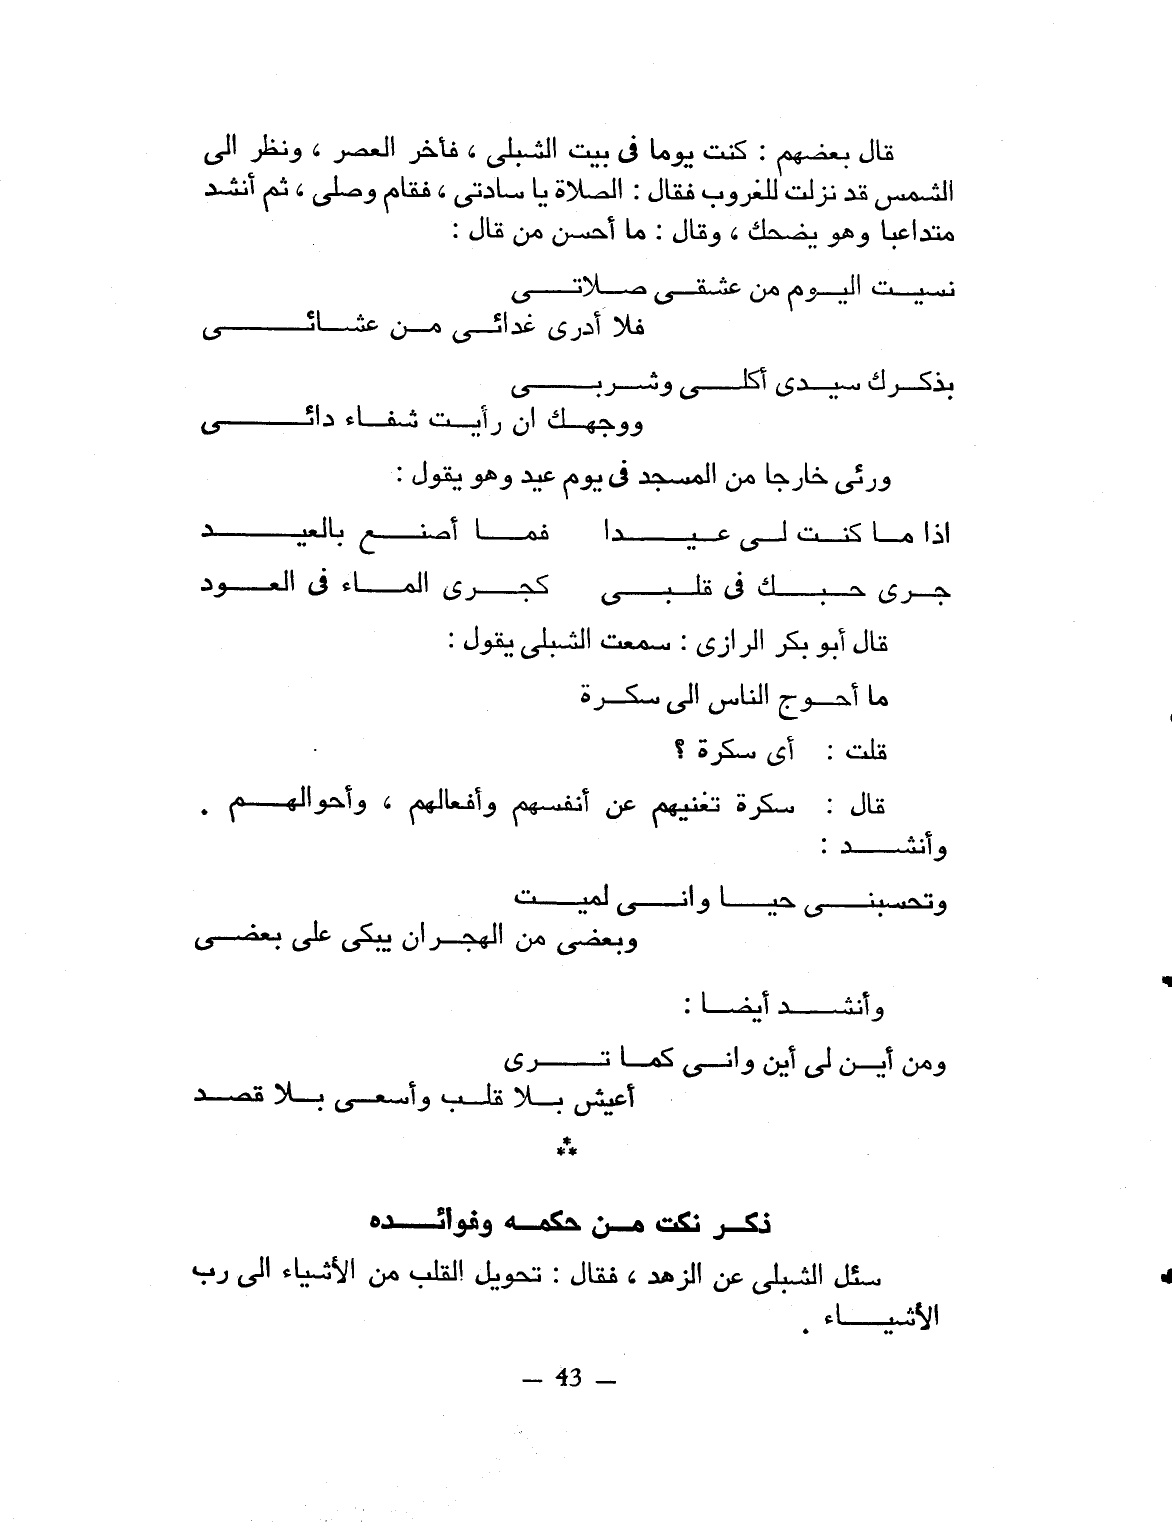 قال بعضهم : كنت يوما فى بيت الشبلى ، فأخر العصر ، ونظر الى
الشمس قد نزلت للغروب فقال : الصلاة يا سادتى ، فقام وصلى ، ثم أنشد
متداعبا وهو يضحك ، وقال : ما أحسن من قال :
نسيت اليوم من عشقى صلاتى
فلا أدرى غدائى من عشائى
بذكرك سيدى أكلى وشربى
ووجهك ان رأيت شفاء دائى
ورئى خارجا من المسجد فى يوم عيد وهو يقول :
اذا ما كنت لى عيدا فما أصنع بالعيد
جرى حبك فى قلبى كجرى الماء فى العود
قال أبو بكر الرازى : سمعت الشبلى يقول :
ما أحوج الناس الى سكرة
قلت : أى سكرة ؟
قال : سكرة تغنيهم عن أنفسهم وأفعالهم ، وأحوالهم .
وأنشد :
وتحسبنى حيا وانى لميت
وبعضى من الهجران يبكى على بعضى
وأنشد أيضا :
ومن أين لى أين وانى كما ترى
أعيش بلا قلب وأسعى بلا قصد
***
ذكر نكت من حكمه وفوائده
سئل الشبلى عن الزهد ، فقال : تحويل القلب من الأشياء الى رب
الأشياء .
— 43 —